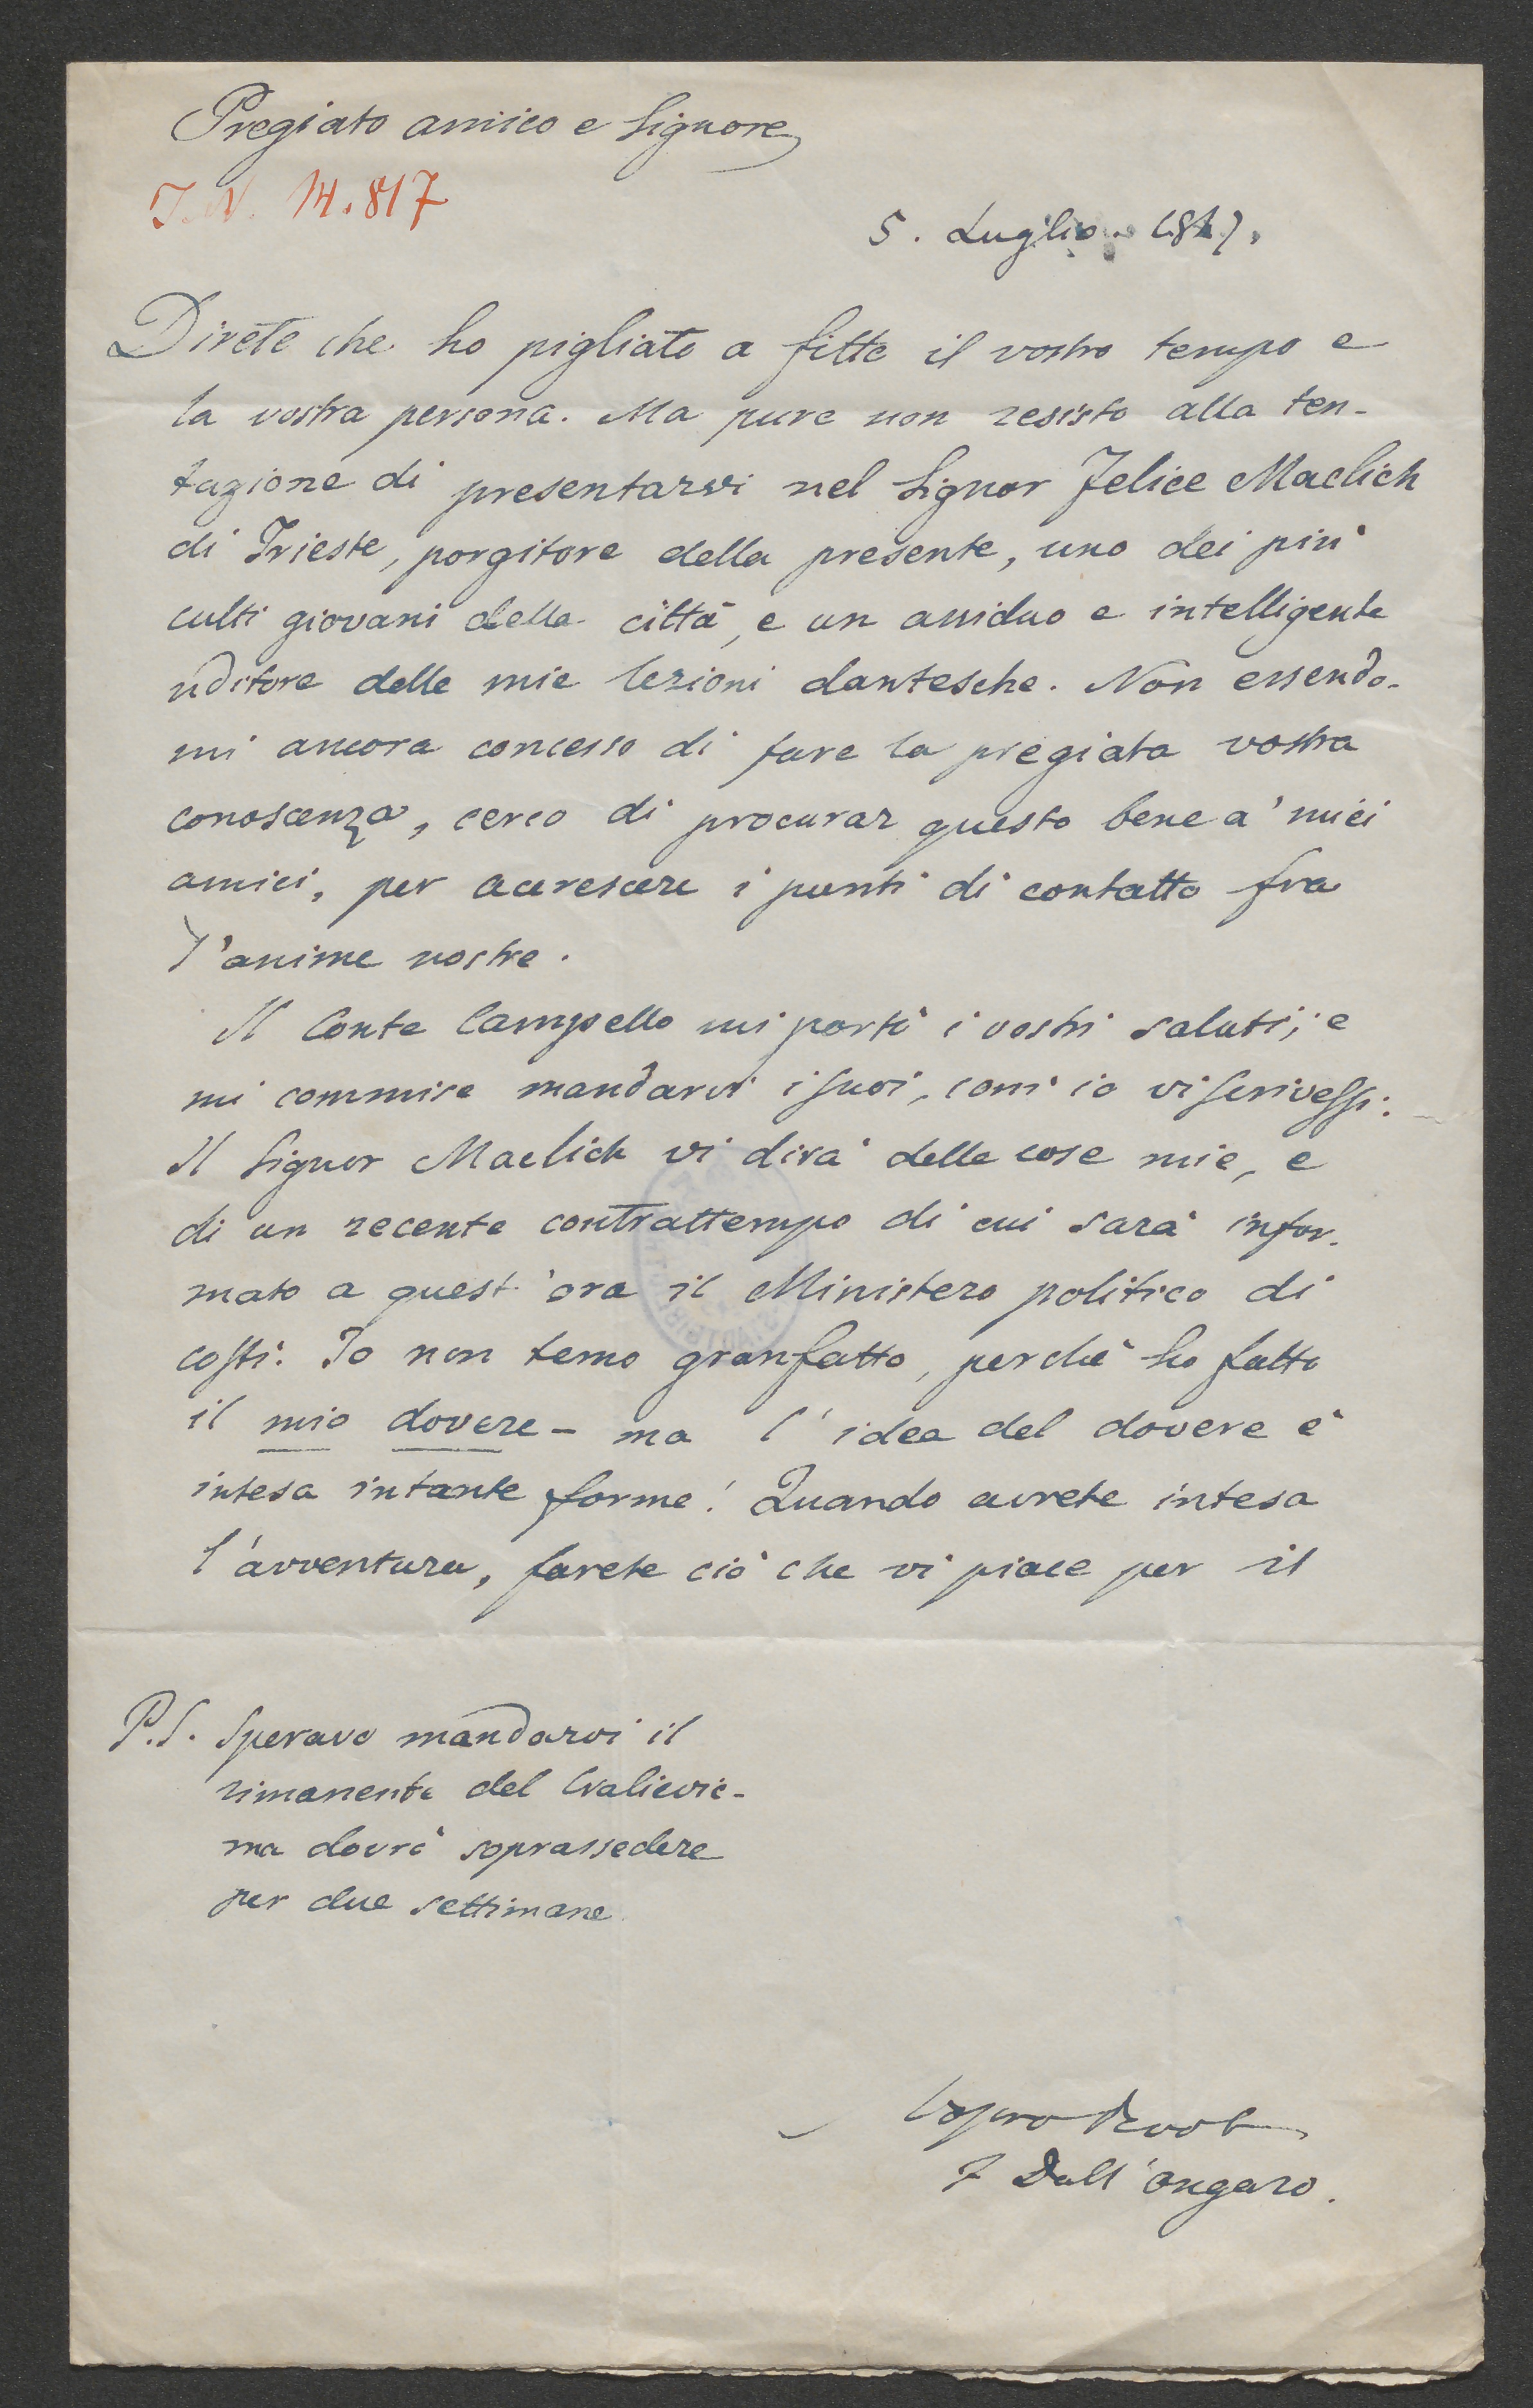 Pregiato amico e Signore
I.N. 14.817
5. Luglio 1847.
Direte che ho pigliato a fitto il vostro tempo e
la vostra persona. Ma pure non resisto alla ten-
tazione di presentarvi nel Signor Felice Maclich
di Trieste, porgitore della presente, uno dei più
culti giovani della città, e un assiduo e intelligente
uditore delle mie lezioni dantesche. Non essendo-
mi ancora concesso di fare la pregiata vostra
conoscenza, cerco di procurar questo bene a' miei
amici, per accrescere i punti di contatto fra
l'anime nostre.
Il Conte Campello mi portò i vostri saluti; e
mi commise mandarvi i suoi, com' io vi scrivessi.
Il Signor Maclich vi dirà delle cose mie, e
di un recente contrattempo di cui sarà infor-
mato a quest'ora il Ministero politico di
costì. Io non temo granfatto, perchè ho fatto
il mio dovere - ma l'idea del dovere è
intesa in tante forme! Quando avrete intesa
l'avventura, farete ciò che vi piace per il
P.S. Speravo mandarvi il
rimanente del Cralievic -
ma dovrò soprassedere
per due settimane
F Dall'Ongaro.